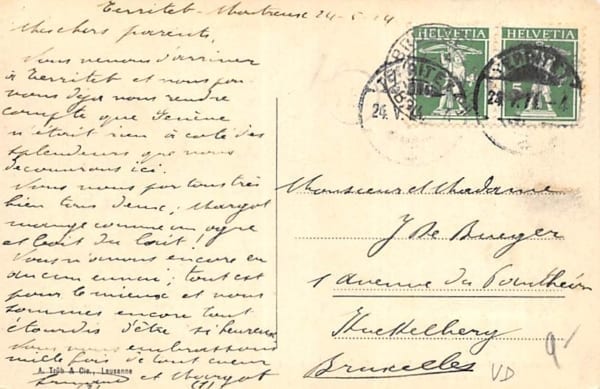 Territet-Montreux 24-5-14
Mes chers parents,
Nous venons d'arriver
à Territet et nous pou
vons déjà nous rendre
compte que Genève
n'était rien à côté des
splendeurs que nous
découvrons ici.
Nous nous portons très
bien tous deux, Margot
mange comme un ogre
et boit du lait!
Nous n'avons encore eu
aucun ennui; tout est
pour le mieux et nous
sommes encore tout
étourdis d'être si heureux
Nous vous embrassons
mille fois de tout coeur
et Margot
A. Trüb & Cie., Lausanne
HELVETIA
HELVETIA
5
TERRITET
24.V.14.
Monsieur et Madame
J De Bueger
1 avenue du Panthéon
Koekelberg
Bruxelles
VD